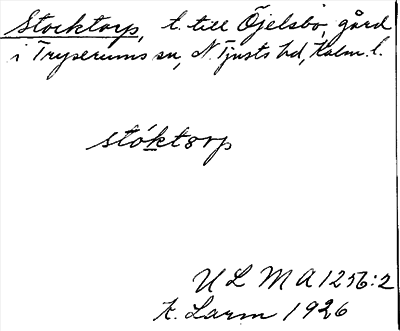 Stocktorp, t. till Öjelsbo, gård
i Tryserums sn, N. Tjusts hd, Kalm. l.
stóktorp
U L M A 1256:2
K. Larm 1926